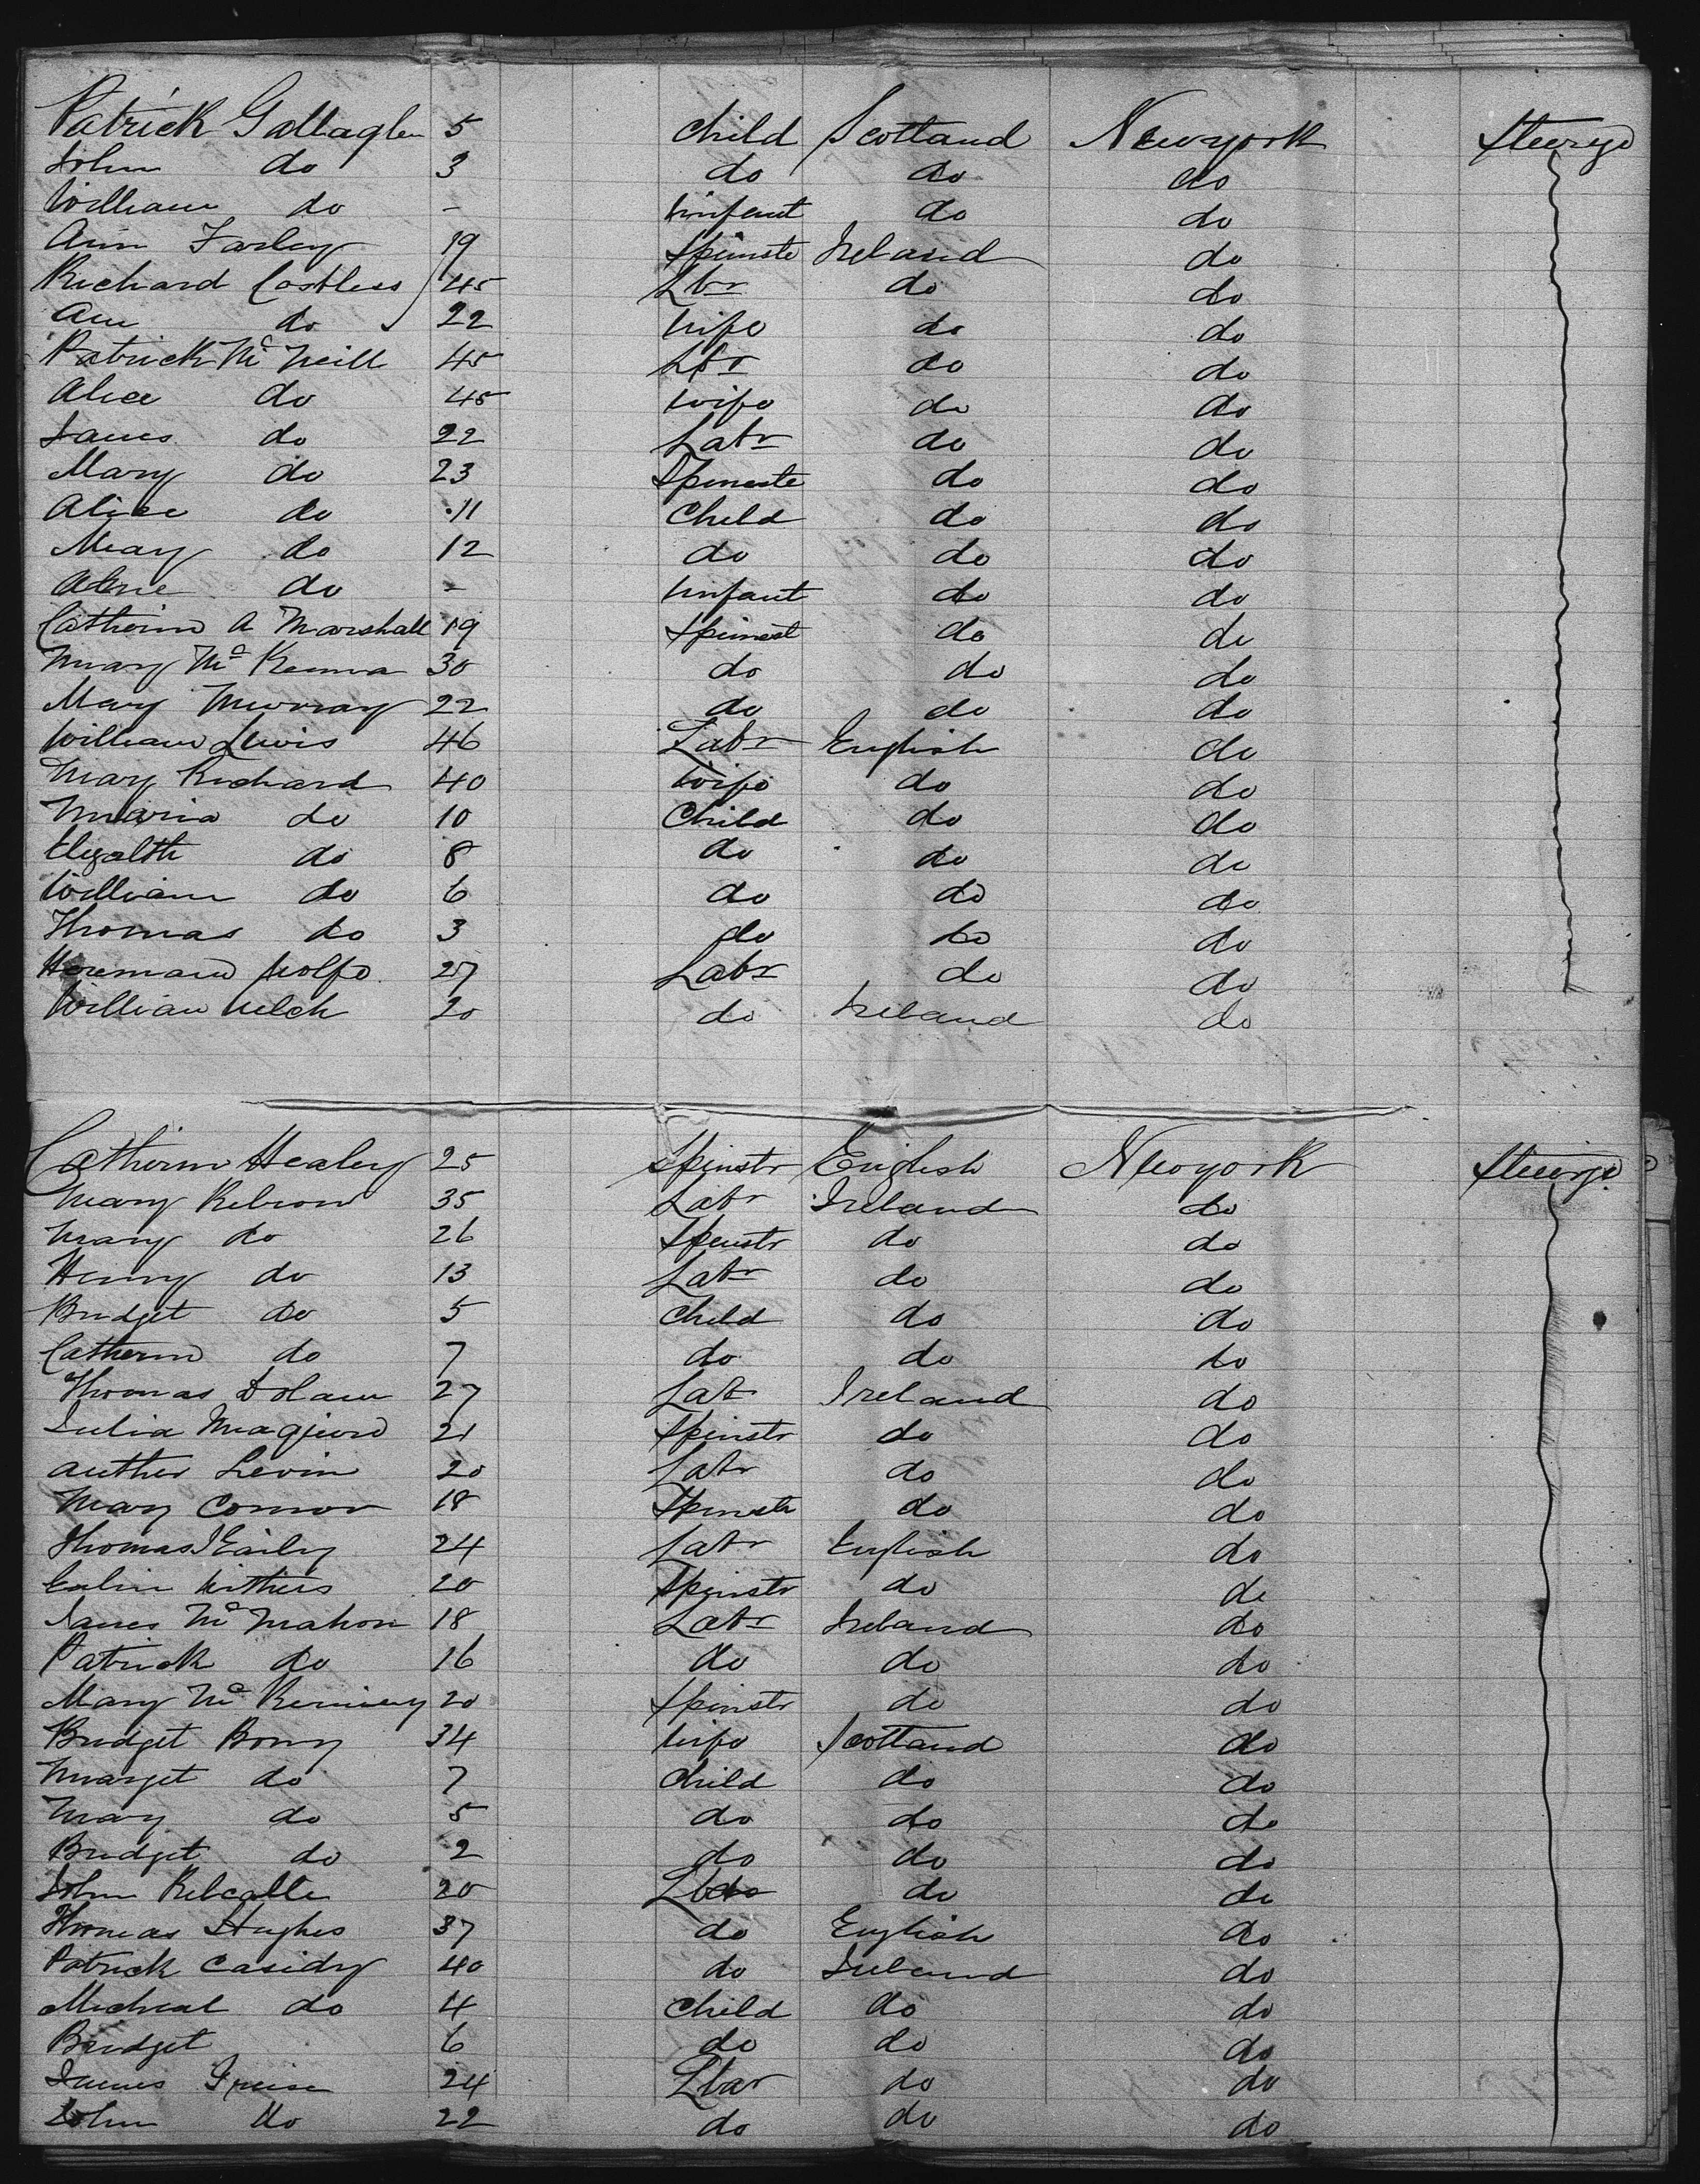 Patrick Gallagher 5 Child Scotland New york Steerge
John do 3 do do do
William do - infant do do
Ann Farley 19 Spinste Ireland do
Richard Costless 45 Lbr do do
Ann do 22 wife do do
Patrick Mc Neill 45 Lbr do do
Alice do 45 wife do do
James do 22 Labr do do
Mary do 23 Spineste do do
Alice do 11 Child do do
Mary do 12 do do do
do - infant do do
Catherine A Marshall 19 Spinest do do
Mary Mc Kenna 30 do do do
Mary Murray 22 do do do
William Lewis 46 Labr English do
Mary Richard 40 wife do do
Maria do 10 Child do do
do 8 do do do
William do 6 do do do
Thomas do 3 do do do
Heremann Wolfe 27 Labr do do
William Welch 20 do Ireland do
Catherine Healey 25 Spinstr English New york Steerge
Mary 35 Labr Ireland do
Mary do 26 Spinstr do do
Henry do 13 Labr do do
Bridget do 5 Child do do
Catherine do 7 do do do
Thomas Dolan 27 Lab Ireland do
Julia 21 Spinstr do do
Auther Levin 20 Labr do do
Mary Connor 18 Spinstr do do
Thomas 24 Labr English do
Withers 20 Spinstr do do
James Mc Mahon 18 Labr Ireland do
Patrick do 16 do do do
Mary Mc 20 Spinstr do do
Bridget 34 wife Scotland do
Marget do 7 Child do do
Mary do 5 do do do
Bridget do 2 do do do
John 20 do do
Thomas Hughes 37 do English do
Patrick Casidy 40 do Ireland do
Micheal do 4 Child do do
Bridget 6 do do do
James 24 Lbar do do
John do 22 do do do